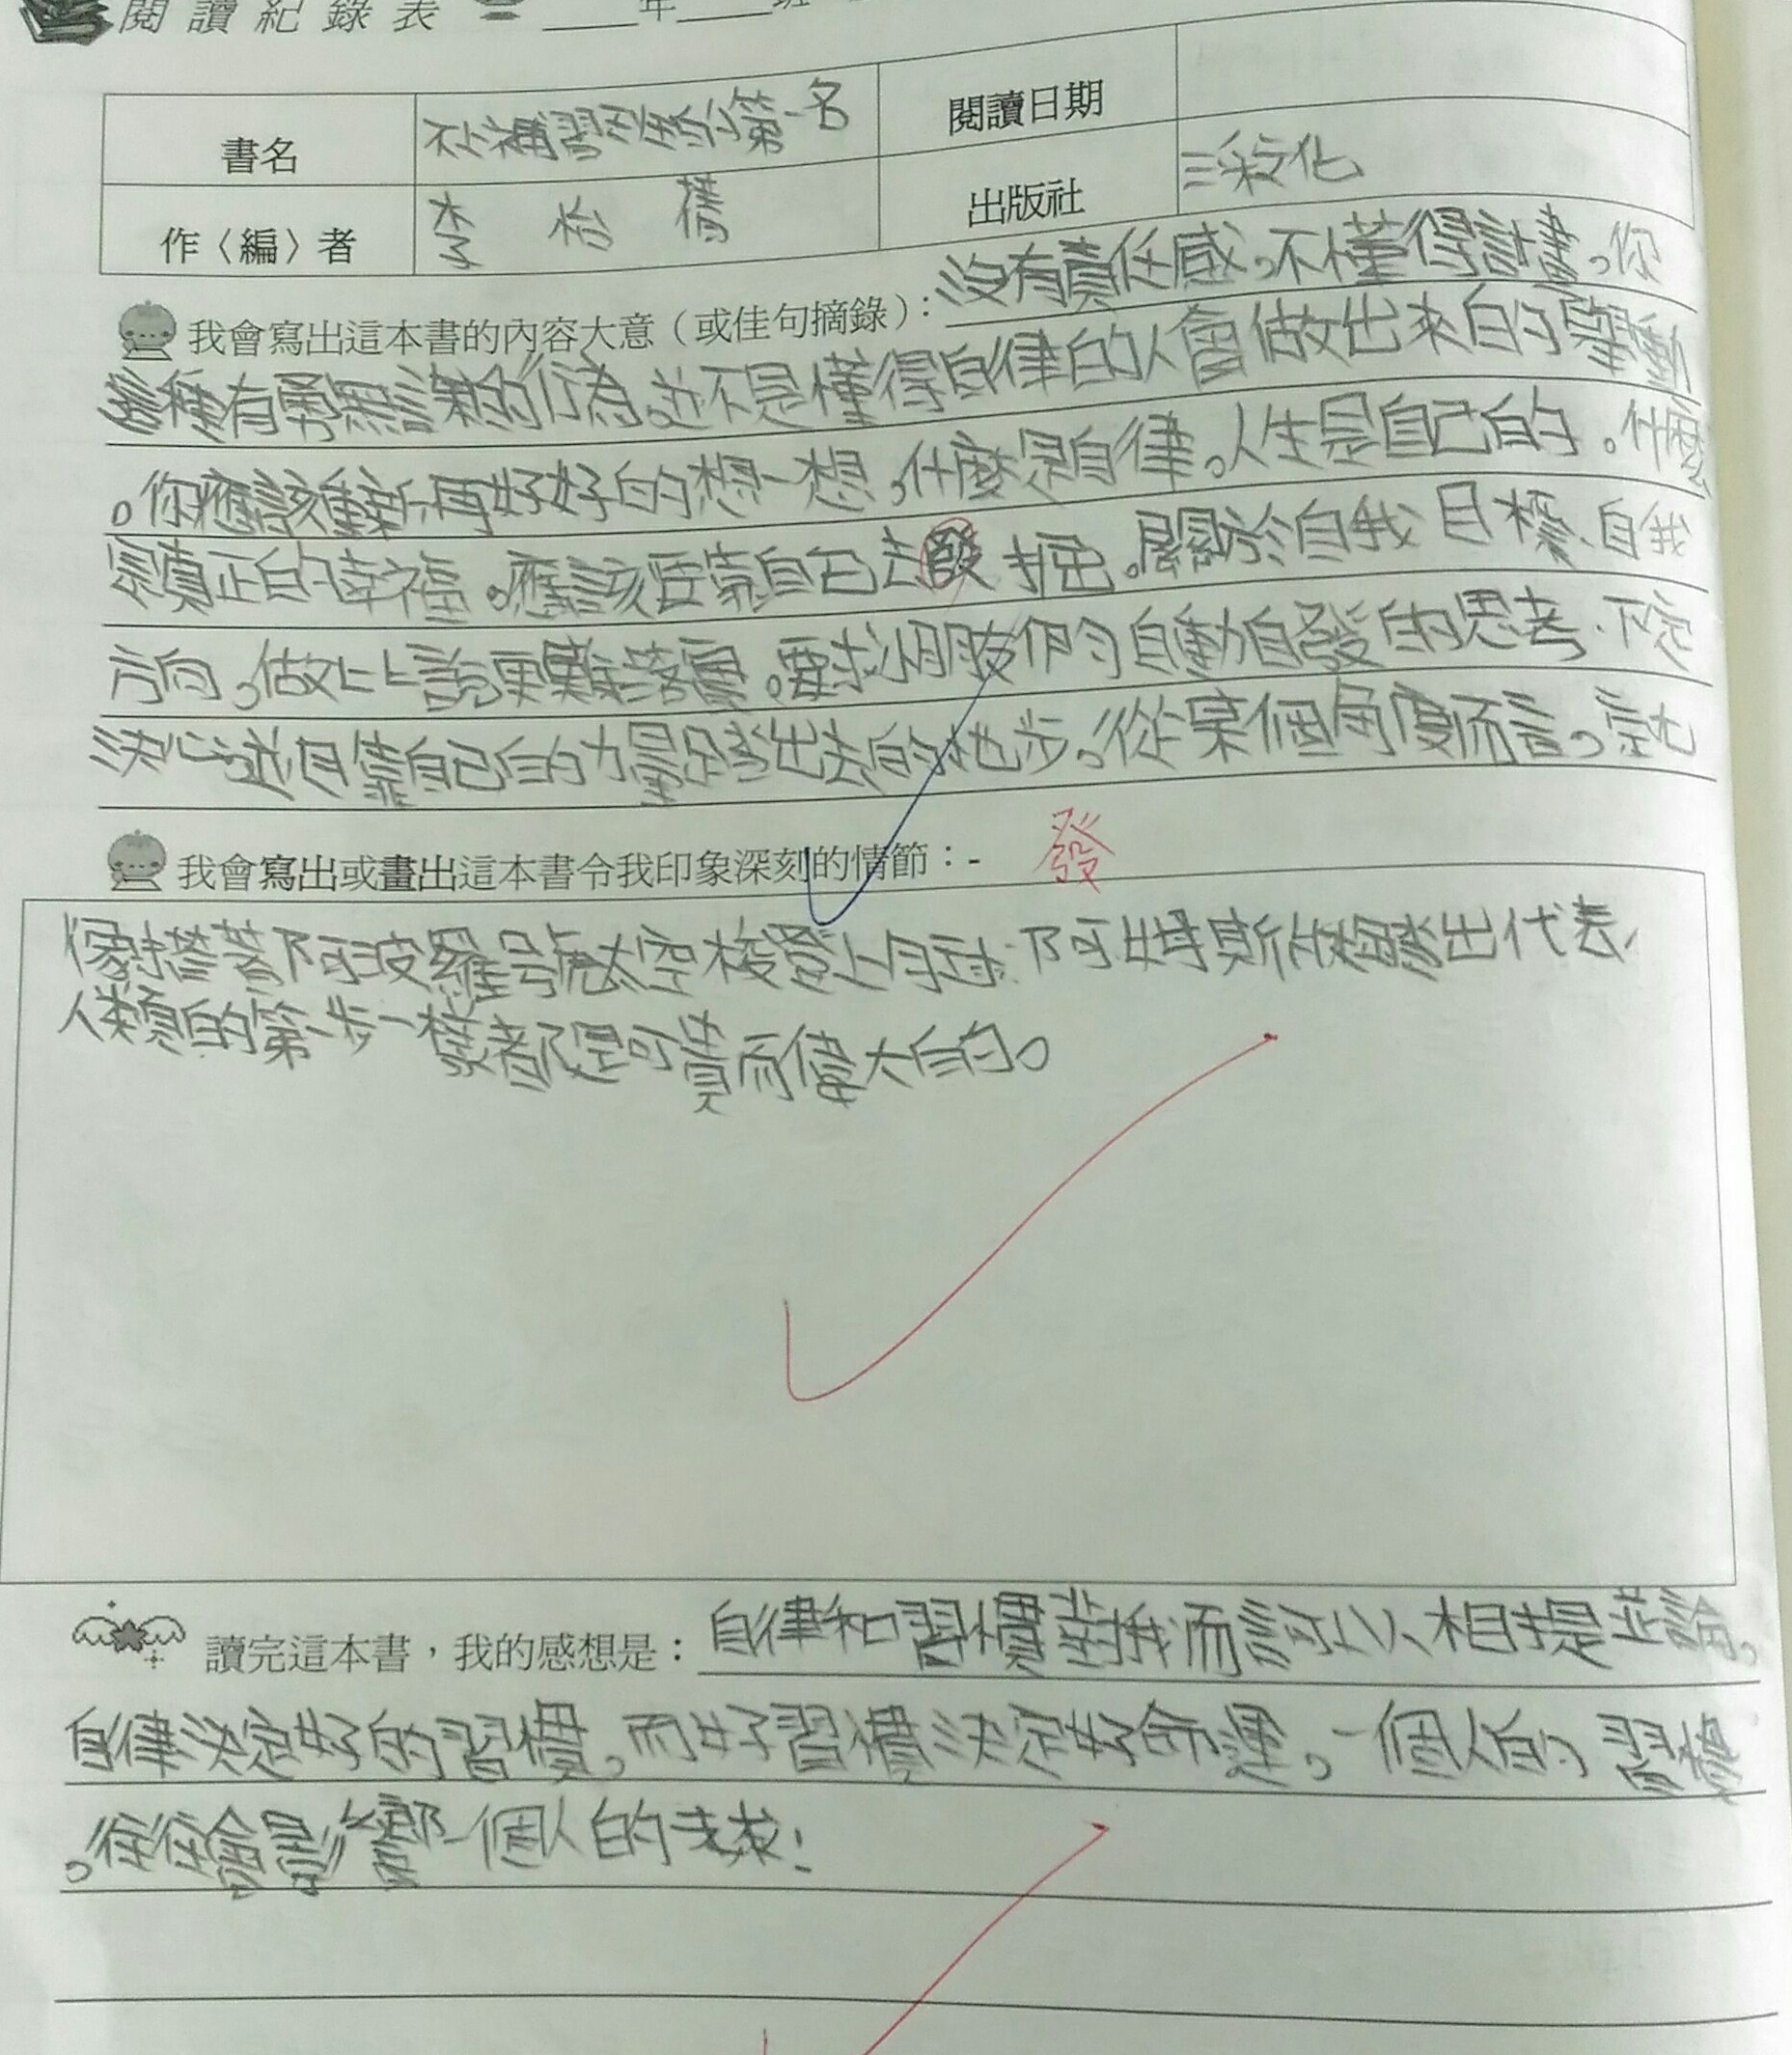 閱讀紀錄表 ____年____班
書名 不補習的第一名 閱讀日期
作〈編〉者 李怡蒨 出版社 三采文化
我會寫出這本書的內容大意（或佳句摘錄）：沒有責任感,不懂得計畫。你
這種有勇無謀的行為,並不是懂得自律的人會做出來的舉動
。你應該重新再好好的想一想,什麼是自律。人生是自己的。什麼
是真正的幸福。應該要靠自己去發掘。關於自我目標、自我
方向,做比說更難落實。要求小朋友們自動自發的思考、下定
決心,並且靠自己的力量踏出去的地步。從某個角度而言。就
我會寫出或畫出這本書令我印象深刻的情節：- 發
像搭著阿波羅號太空梭登上月球、阿姆斯壯踏出代表
人類的第一步一樣,都是可貴而偉大的。
讀完這本書，我的感想是：自律和習慣對我而言可以相提並論。
自律決定好的習慣。而好習慣決定好命運。一個人的習慣
。往往會影響一個人的未來!